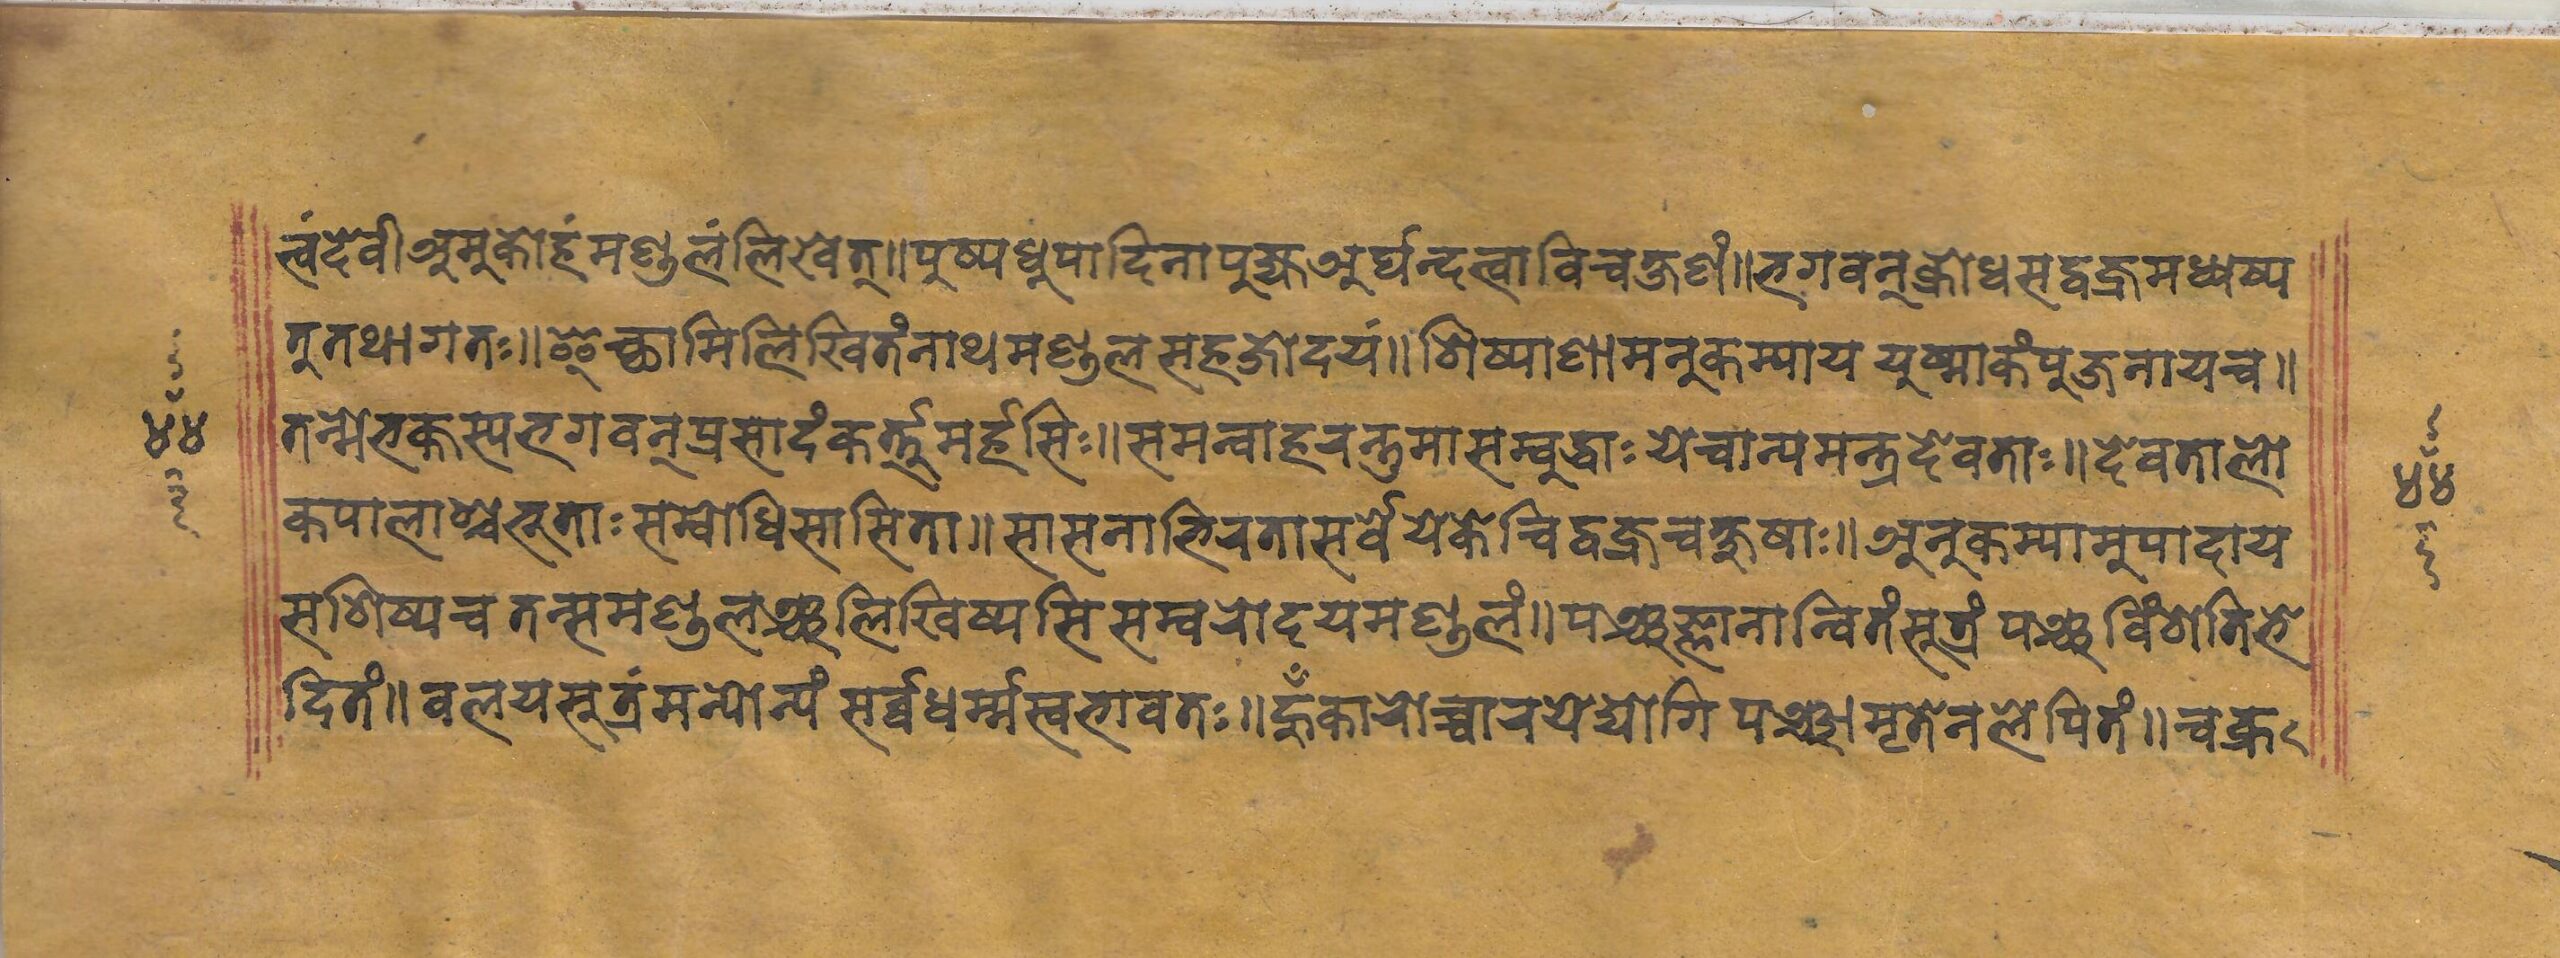 त्वंदेवीअमुकोहंमण्डलंलिखेत्॥पुष्पधुपादिनापुज्यअर्घन्दत्वाविचक्षणं॥भगवन्क्रोधसद्वज्रमध्यष्य
तुतथागतः॥इच्छामिलिखितंनाथमण्डलसहजोदयं॥शिष्याणामनुकम्पाय युष्माकंपुजनायच॥
४४ तन्मेभक्तस्यभगवन्प्रसादंकर्त्तुमर्हसिः॥समन्वाहरन्तुमासम्बुद्धाः येचान्यमन्त्रदेवताः॥देवतालो ४४
कपालाश्चभूताः सम्बोधिसासिता॥ सासनाभिरतासर्वे येकेचिद्वज्रचक्षुषाः॥अनुकम्पामुपादाय
सशिष्यच तन्समण्डलञ्चलिखिष्यसि सम्बरोदयमण्डलं॥पञ्चज्ञानान्वितंसूत्रं पञ्चविंशतिभे
दितं॥वलयसूत्रंमन्योन्यं सर्व्वधर्म्मस्वभावतः॥हूँकारोच्चारयेद्योगि पञ्चामृतेनलेपितं॥चक्र